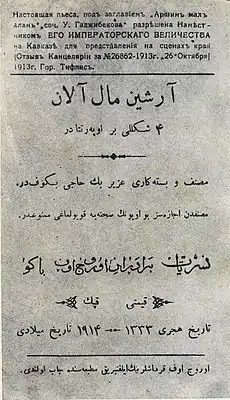 Настоящая пьеса, подъ заглавіемъ „Аршинъ малъ
аланъ“, соч. У. Гаджибекова" разрѣшена Намѣст-
никомъ ЕГО ИМПЕРАТОРСКАГО ВЕЛИЧЕСТВА
на Кавказѣ для представленія на сценахъ края
(Отзывъ Канцеляріи за №26862-1913г. „26“ Октября)
1913г. Гор. Тифлисъ.
آرشین مال آلان
۴ شکللی بر اوپه‌رتتا در
مصنف و بسته‌کاری عزیر بك حاجی بكوف در.
مصنفدن اجازه‌سز بو اوپونك صحنه‌یه قویولماغی ممنوعدر.
نشریات برادران اوروج اوف باكو
قیمتی قپك
تاریخ هجری ۱۳۳۳ — ۱۹۱۴ تاریخ میلادی
اوروج اوف قرداشلرینك مطبعه‌سنده چاپ اولندی.